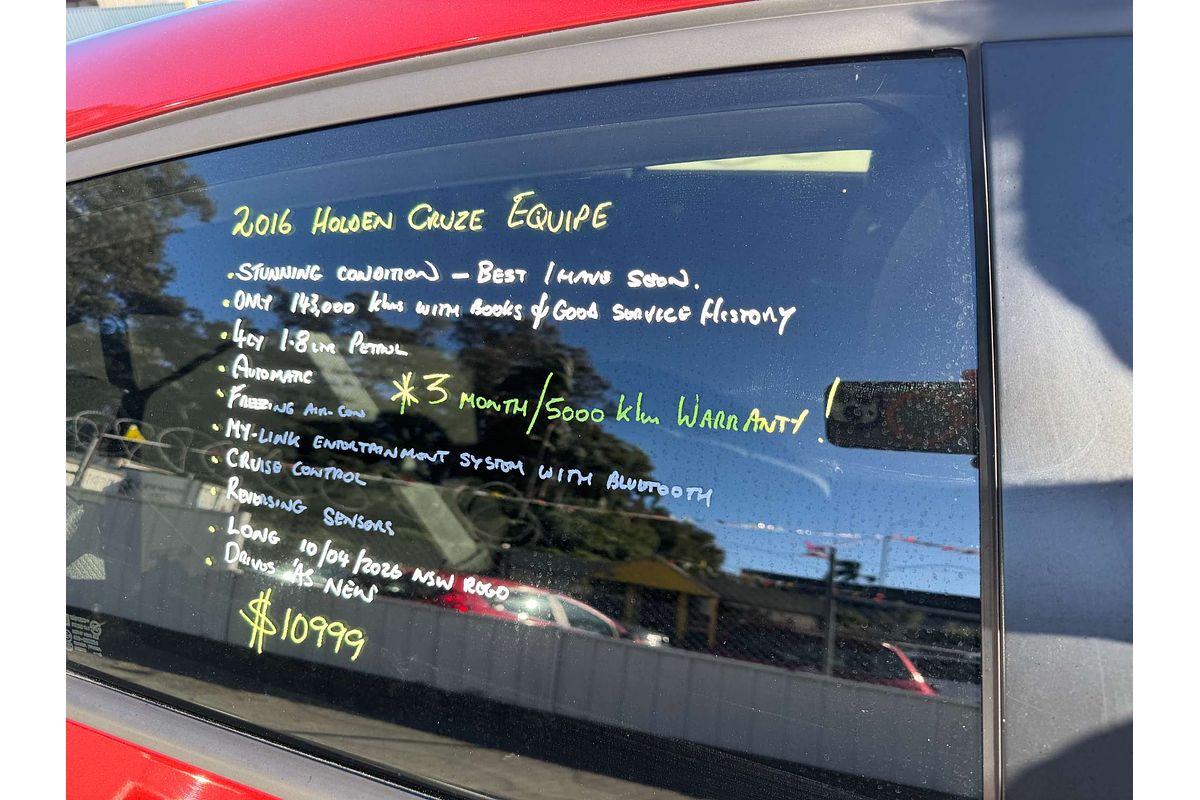 2016 HOLDEN CRUZE EQUIPE
• STUNNING CONDITION – BEST I HAVE SEEN.
• ONLY 143,000 klms WITH BOOKS & GOOD SERVICE HISTORY
• 4CY 1.8 Litre PETROL
• AUTOMATIC
• FREEZING AIR-CON
* 3 MONTH/5000 klm WARRANTY!
• MY-LINK ENTERTAINMENT SYSTEM WITH BLUETOOTH
• CRUISE CONTROL
• REVERSING SENSORS
• LONG 10/04/2026 NSW REGO
• DRIVES 'AS NEW
$10999